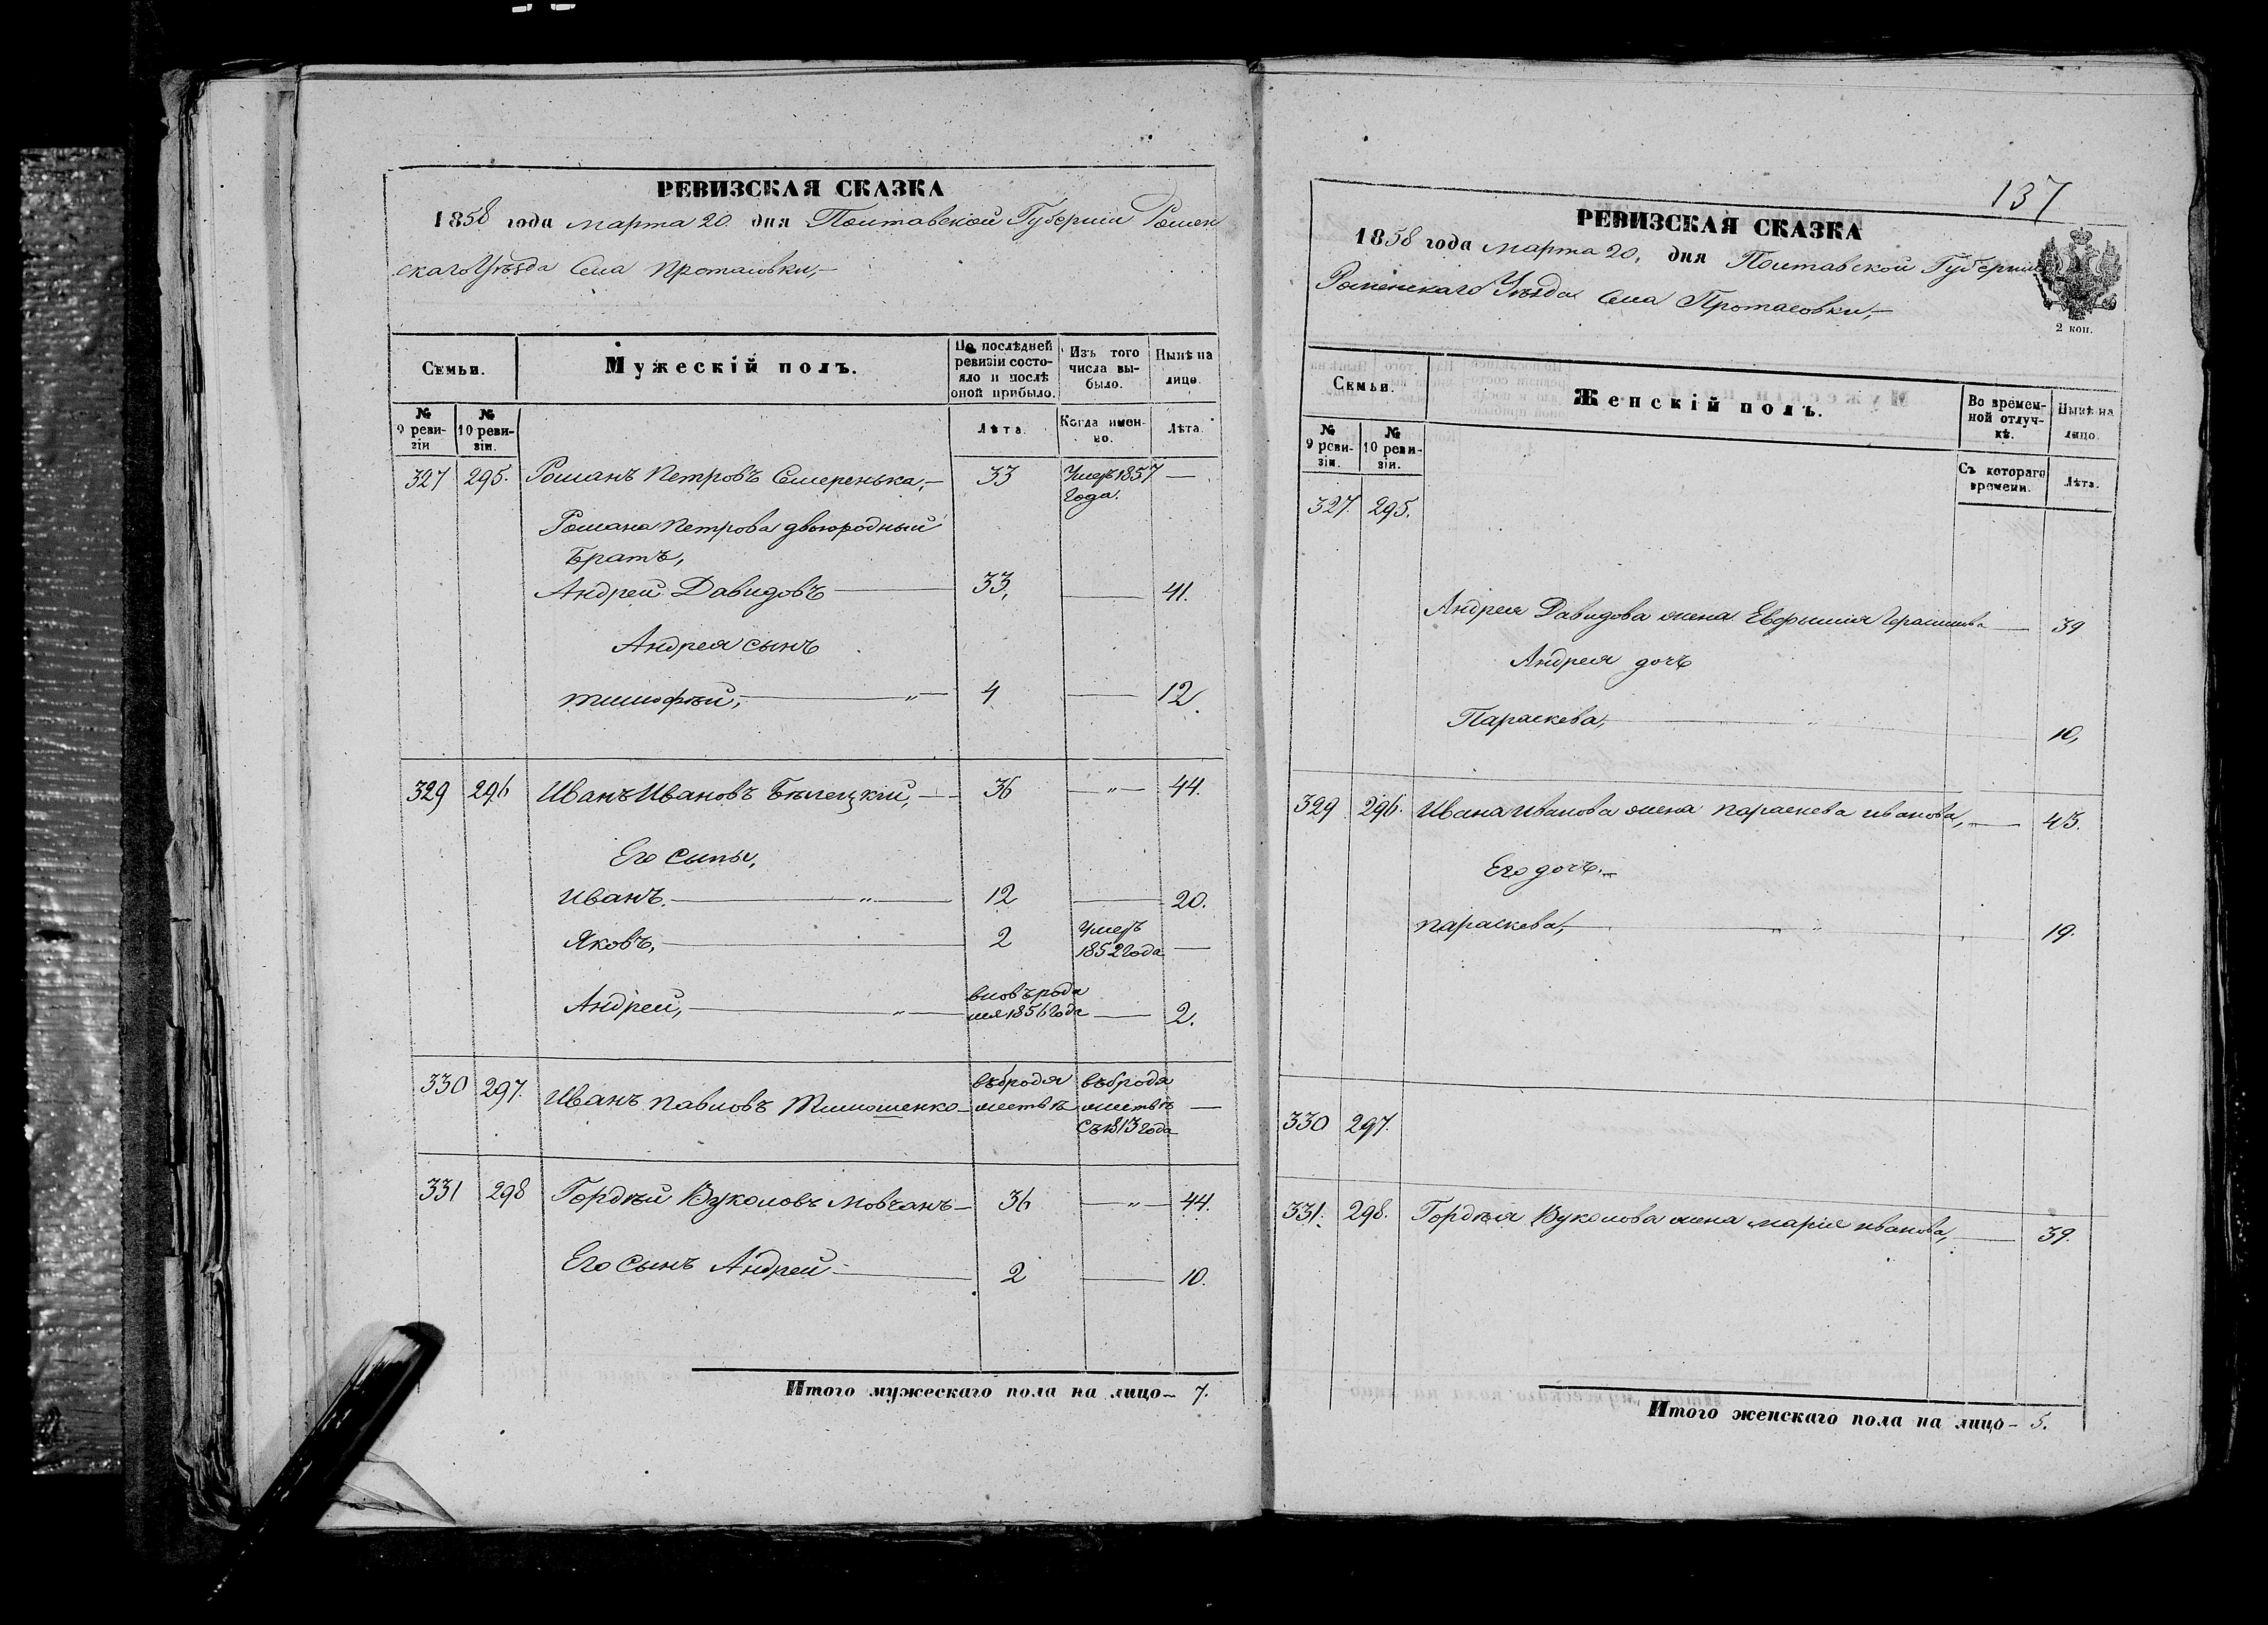 РЕВИЗСКАЯ СКАЗКА
1858 года марта 20. дня Полтавской Губернiи Ромен
скаго Уѣзда Села Протасовки,
Семьи.
Мужескій полъ.
По послѣдней ревизіи состояло и послѣ оной прибыло.
Изъ того числа выбыло.
Нынѣ на лицо.
№ 9 ревизіи
№ 10 ревизіи.
Лѣта.
Когда именно.
Лѣта.
327 295. Романъ Петровъ Семеренька, 33 Умеръ 1857 —
года.
Романа Петрова двоюродный
Братъ,
Андрей Давидовъ 33, — 41.
Андрея сынъ
тимофѣй, „ 4 — 12.
329 296 Иванъ Ивановъ Бѣлецкій, 36 „ 44.
Его Сыны,
Иванъ. „ 12 — 20.
Яковъ, 2 Умеръ
1852 года —
Андрей, „ вновъ роди
лся 1856 года — 2.
330 297. Иванъ павловъ Тимошенко въ бродя въ бродя
жествѣ жествѣ —
съ 1813 года
331 298 Гордѣй Вуколовъ мовчанъ 36 „ 44.
Его Сынъ Андрей 2 — 10.
Итого мужескаго пола на лицо 7.
137
РЕВИЗСКАЯ СКАЗКА
1858 года марта 20, дня Полтавской Губернiи
Роменскаго Уѣзда Села Протасовки,
2 коп.
Семьи.
Женскій полъ.
Во временной отлучкѣ.
Нынѣ на лицо.
№ 9 ревизіи.
№ 10 ревизіи.
Съ котораго времени.
Лѣта.
327. 295.
Андрея Давидова жена Евфимія Герасимова 39
Андрея дочь
Параскева, 10,
329 296. Ивана Иванова жена параскева иванова, 43.
Его дочь.
параскева, „ „ 19.
330 297.
331. 298. Гордѣя Вуколова жена марія иванова, 39.
Итого женскаго пола на лицо 5.